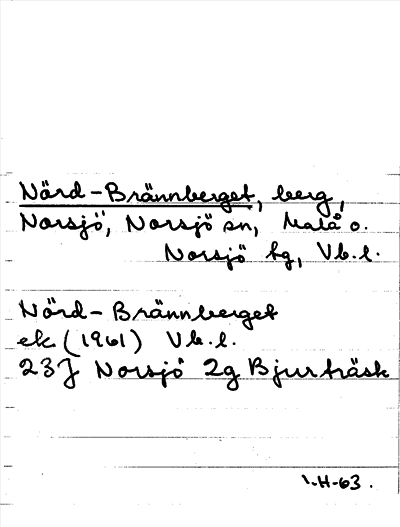 Nörd-Brännberget, berg,
Norsjö, Norsjö sn, Malå o.
Norsjö tg, Vb.l.
Nörd-Brännberget
ek (1961) Vb.l.
23J Norsjö 2g Bjurträsk
I.H-63.